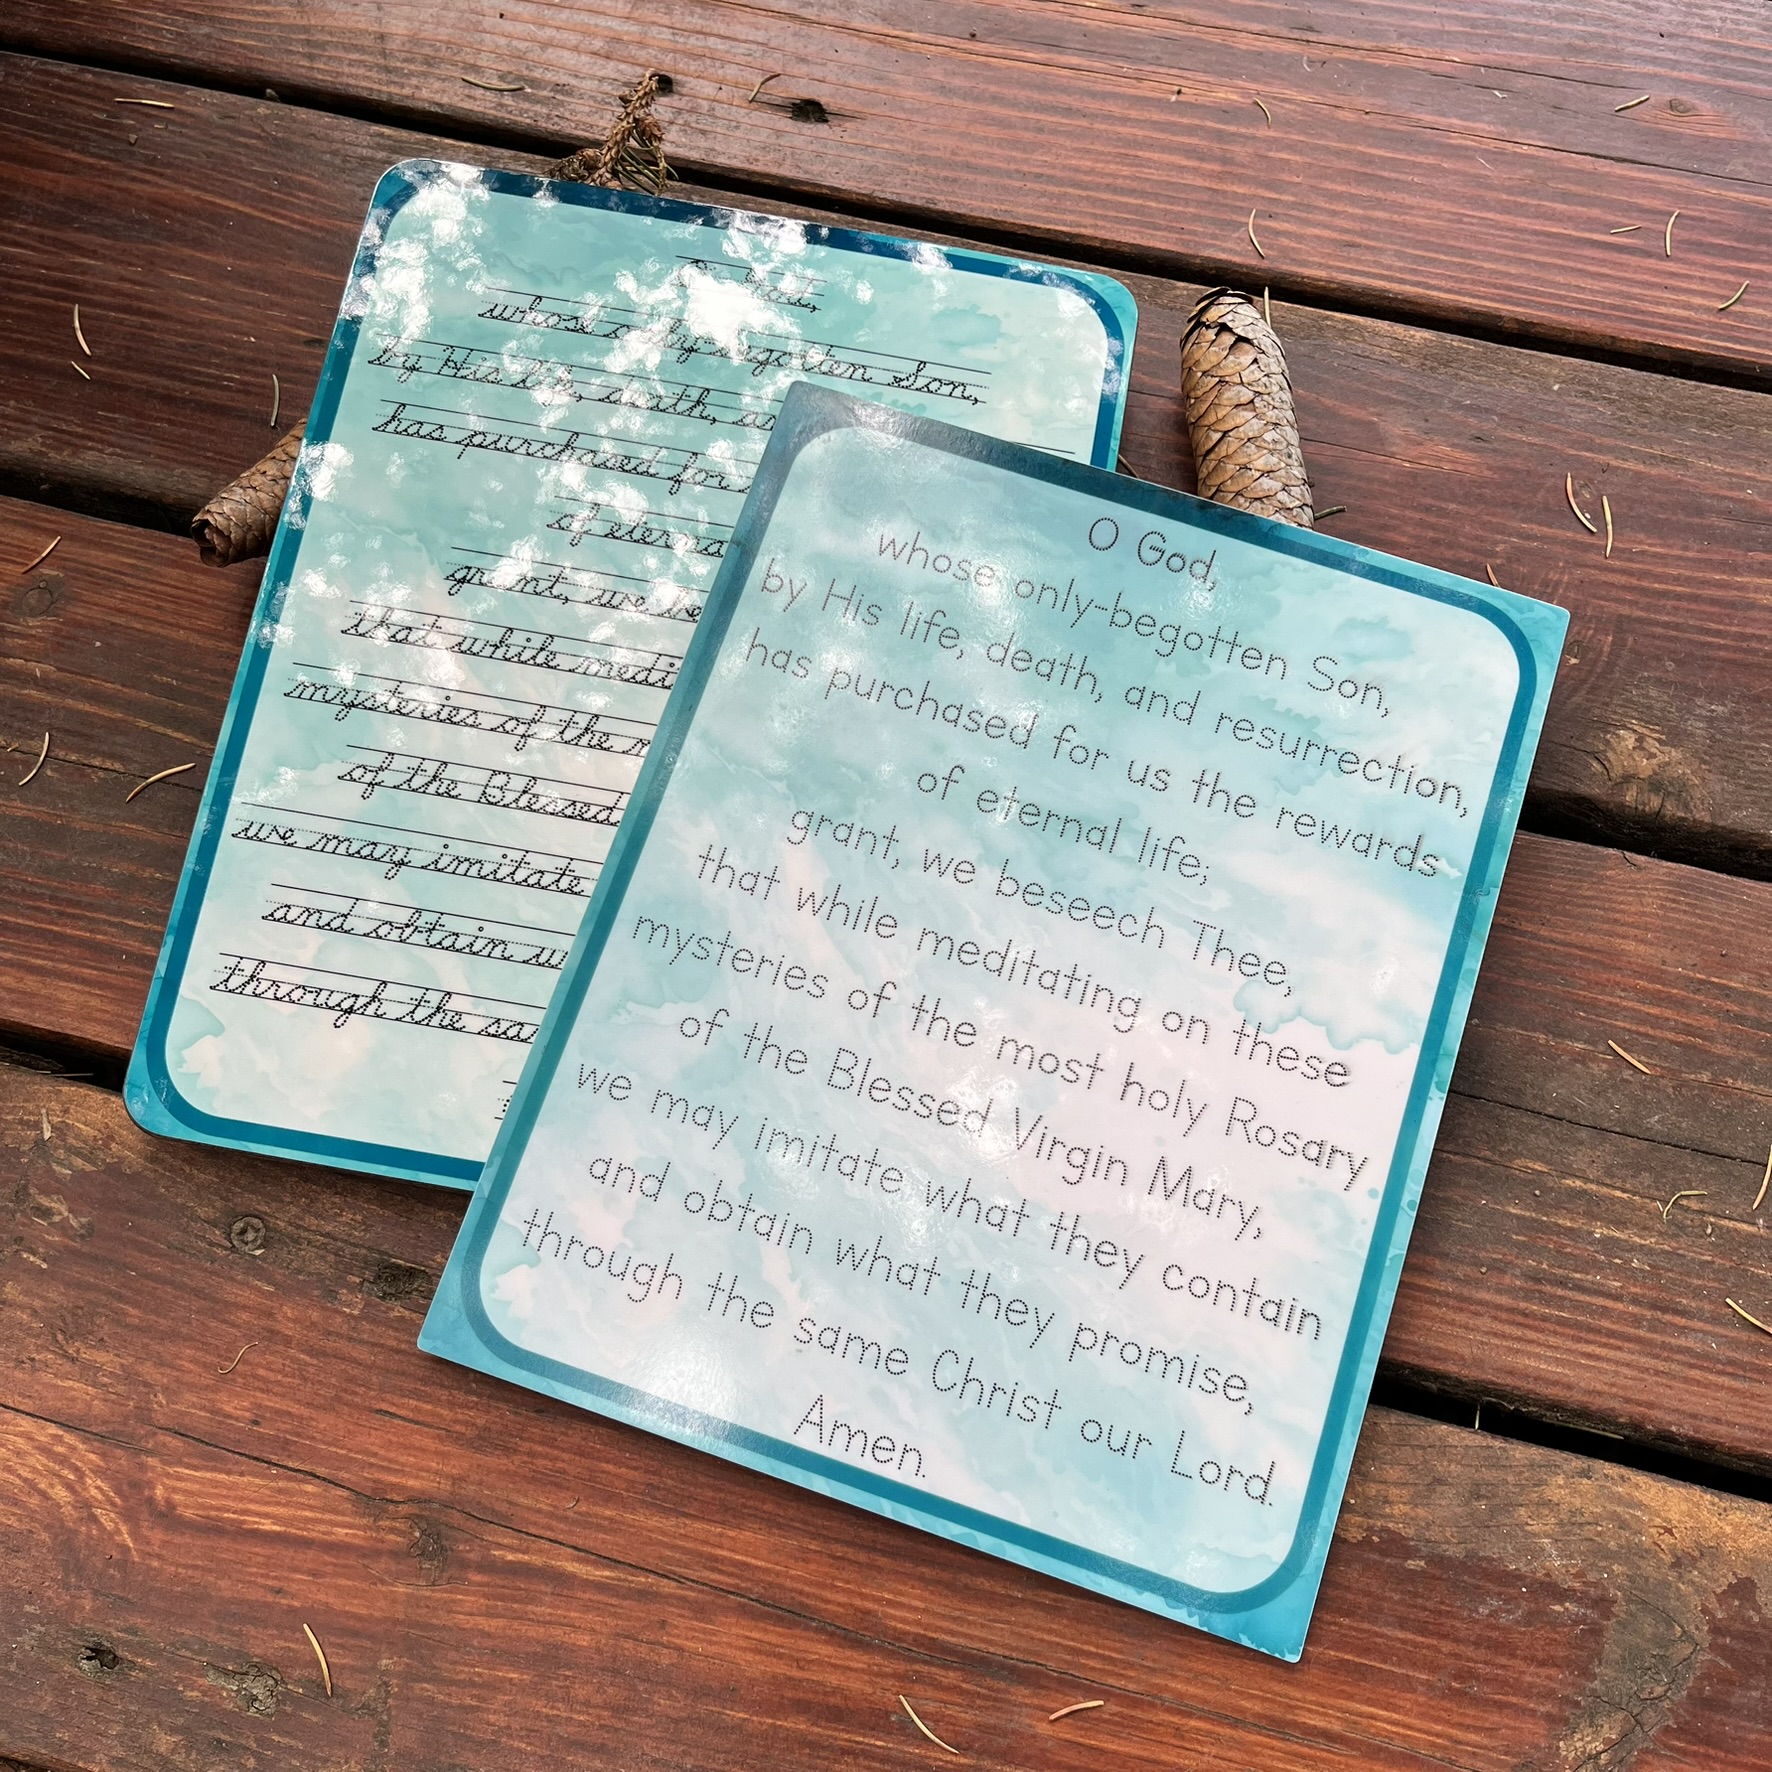 O God,
whose only-begotten Son,
by His life, death,
has purchased for
of eterna
grant, we be
that while medi
mysteries of the m
of the Blessed
we may imitate
and obtain w
through the sa
O God,
whose only-begotten Son,
by His life, death, and resurrection,
has purchased for us the rewards
of eternal life;
grant, we beseech Thee,
that while meditating on these
mysteries of the most holy Rosary
of the Blessed Virgin Mary,
we may imitate what they contain
and obtain what they promise,
through the same Christ our Lord.
Amen.